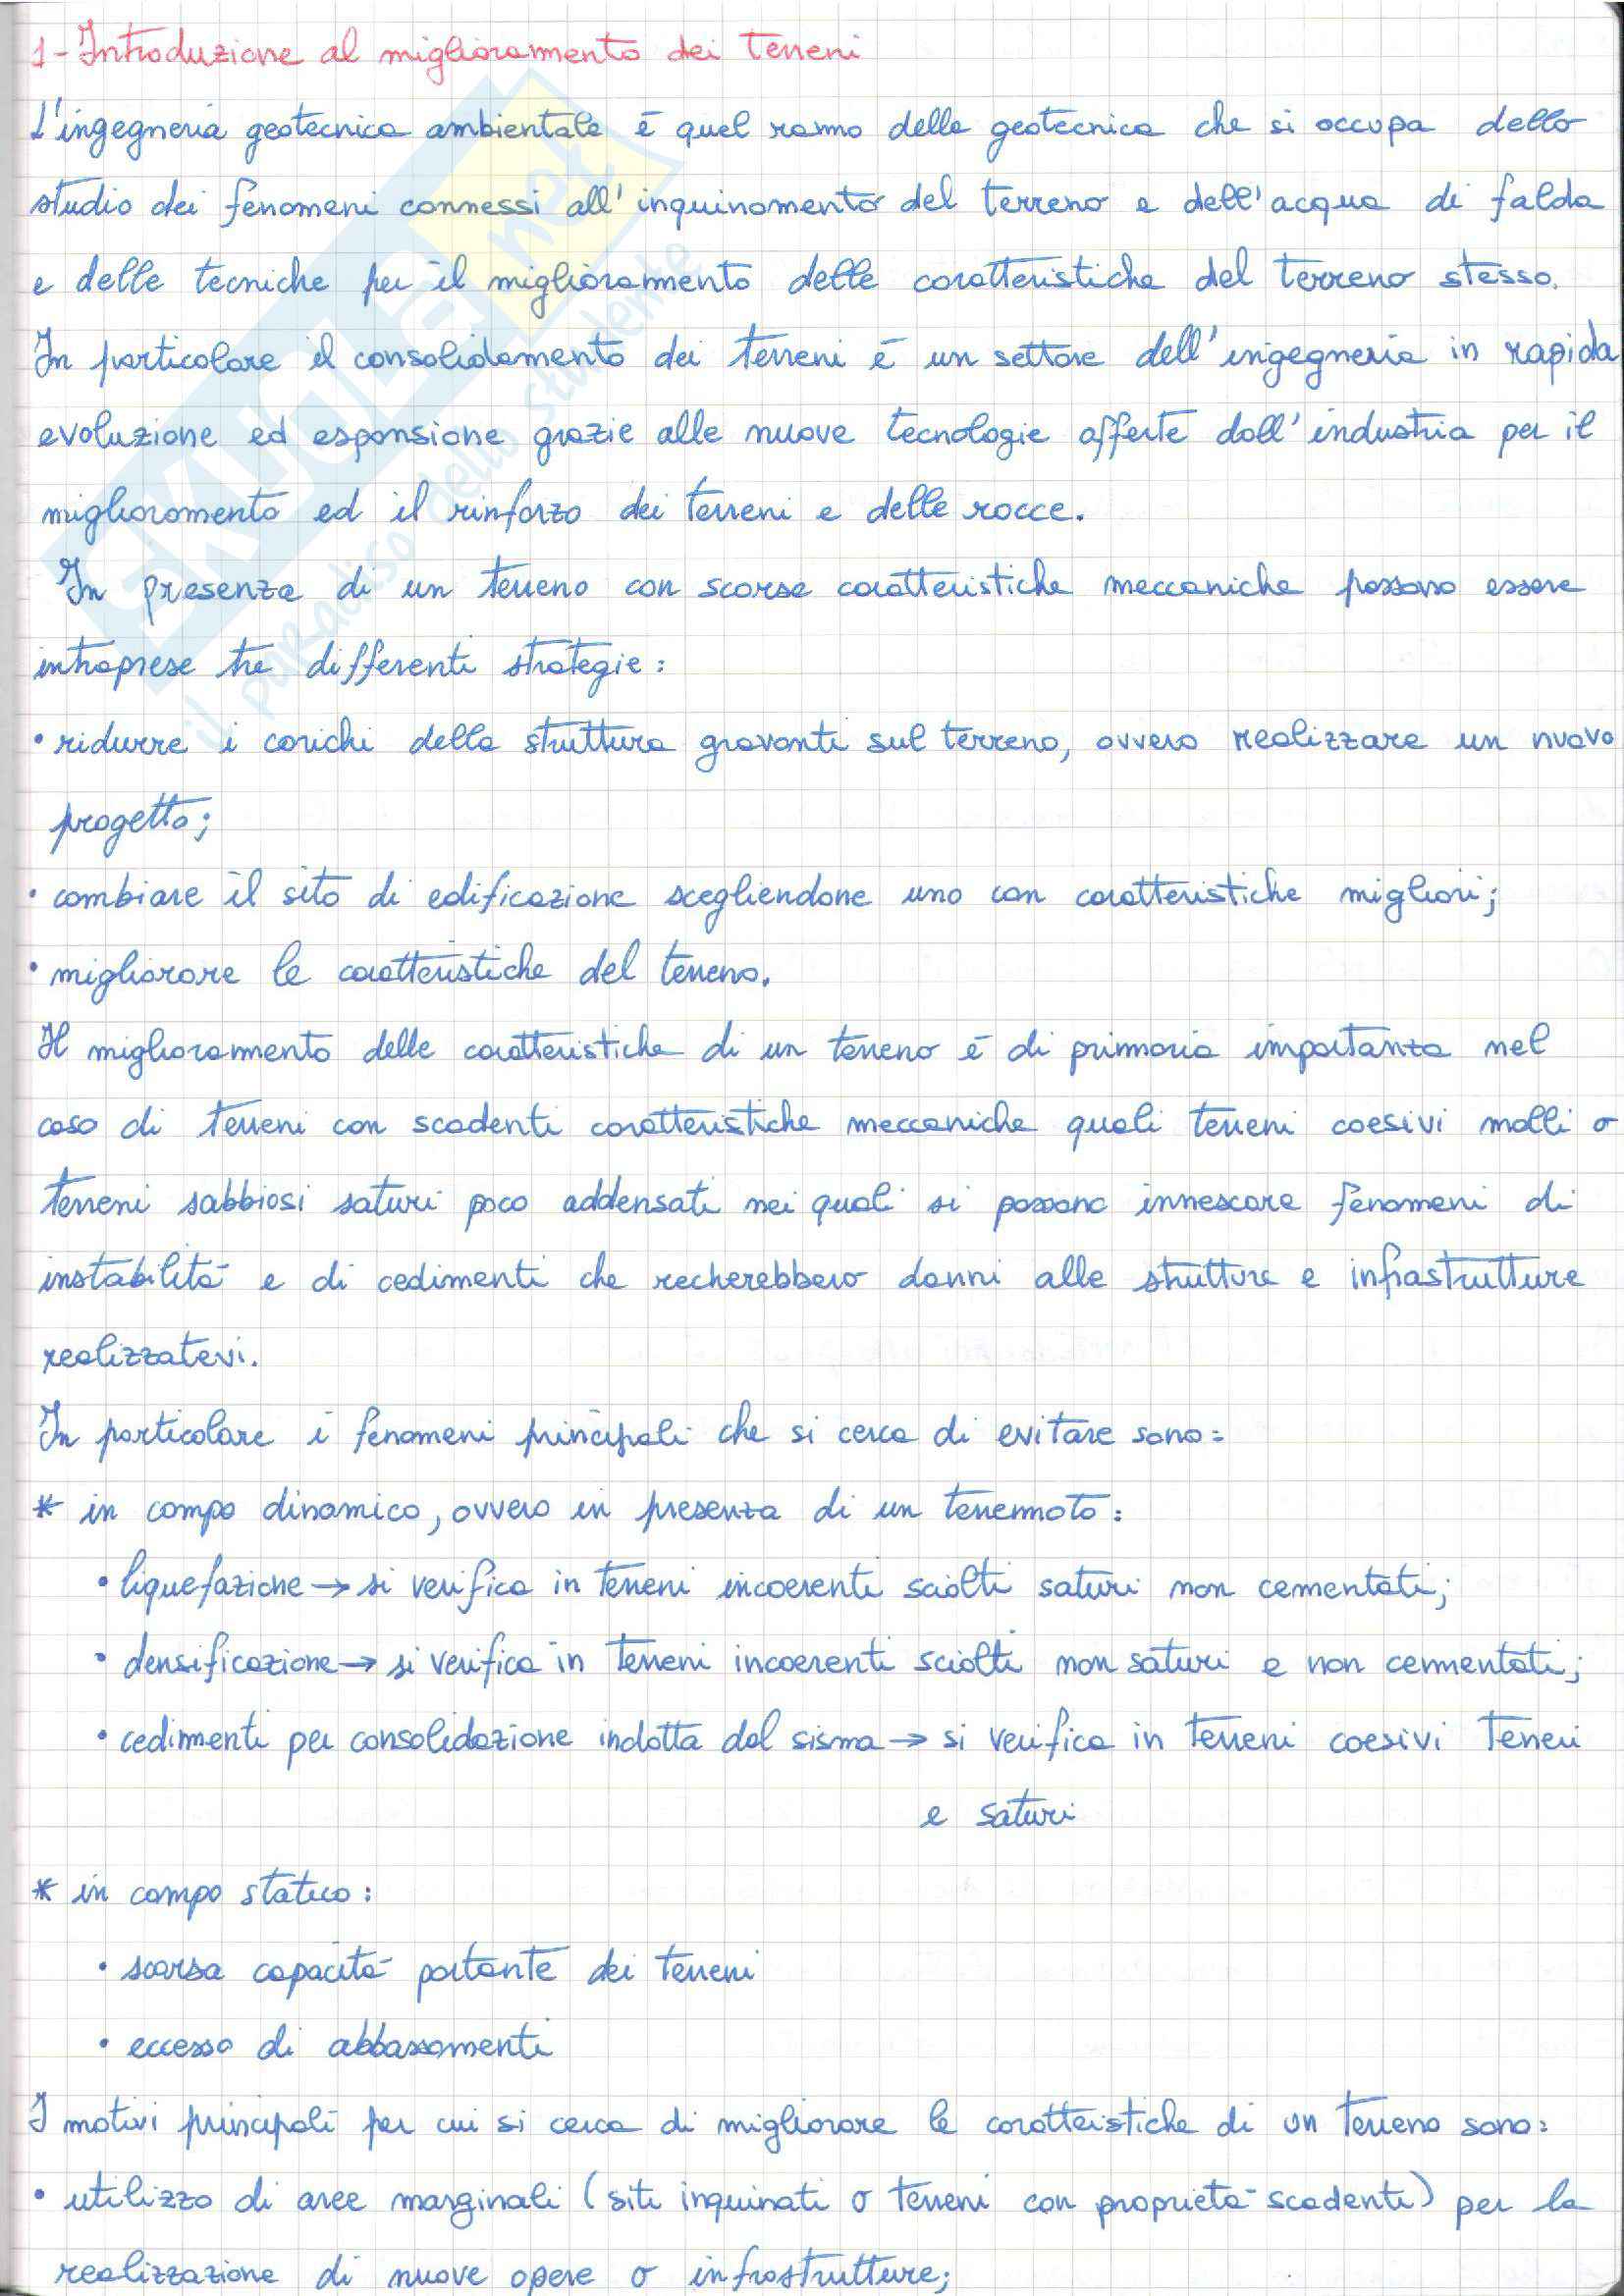 1 - Introduzione al miglioramento dei terreni
L'ingegneria geotecnica ambientale è quel ramo della geotecnica che si occupa dello
studio dei fenomeni connessi all'inquinamento del terreno e dell'acqua di falda
e delle tecniche per il miglioramento delle caratteristiche del terreno stesso.
In particolare il consolidamento dei terreni è un settore dell'ingegneria in rapida
evoluzione ed espansione grazie alle nuove tecnologie offerte dall'industria per il
miglioramento ed il rinforzo dei terreni e delle rocce.
In presenza di un terreno con scarse caratteristiche meccaniche possono essere
intraprese tre differenti strategie:
• ridurre i carichi della struttura gravanti sul terreno, ovvero realizzare un nuovo
progetto;
• cambiare il sito di edificazione scegliendone uno con caratteristiche migliori;
• migliorare le caratteristiche del terreno.
Il miglioramento delle caratteristiche di un terreno è di primaria importanza nel
caso di terreni con scadenti caratteristiche meccaniche quali terreni coesivi molli o
terreni sabbiosi saturi poco addensati nei quali si possono innescare fenomeni di
instabilità e di cedimenti che recherebbero danni alle strutture e infrastrutture
realizzatevi.
In particolare i fenomeni principali che si cerca di evitare sono:
* in campo dinamico, ovvero in presenza di un terremoto:
• liquefazione → si verifica in terreni incoerenti sciolti saturi non cementati;
• densificazione → si verifica in terreni incoerenti sciolti non saturi e non cementati;
• cedimenti per consolidazione indotta dal sisma → si verifica in terreni coesivi teneri
e saturi
* in campo statico:
• scarsa capacità portante dei terreni
• eccesso di abbassamenti
I motivi principali per cui si cerca di migliorare le caratteristiche di un terreno sono:
• utilizzo di aree marginali (siti inquinati o terreni con proprietà scadenti) per la
realizzazione di nuove opere o infrastrutture;
SKUOLA.net
il paradiso dello studente